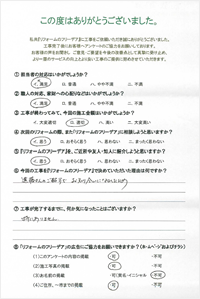 この度はありがとうございました。
私共『リフォームのフリーデア』に工事をご依頼いただき誠にありがとうございました。
工事完了後にお客様へアンケートのご協力をお願いいたしております。
お客様の声をお聞きし、ご意見・ご希望を今後の改善点として真摯に受け止め、
より一層のサービスの向上とより良い工事のご提供に努めさせていただきます。
① 担当者の対応はいかがでしょうか?
イ. 満足 ロ. 普通 ハ. やや不満 ニ. 不満
② 職人の対応、家屋への心配りなどはいかがでしょうか?
イ. 満足 ロ. 普通 ハ. やや不満 ニ. 不満
③ 工事が終わってみて、今回の施工金額はいかがでしょうか?
イ. 大変満足 ロ. 適切 ハ. 高い ニ. 大変高い
④ 次回のリフォームの際、また『フリーデア』に相談しようと思いますか?
イ. 思う ロ. おそらく思う ハ. わからない ニ. 思わない
⑤ 『リフォームのフリーデア』を、ご近所や友人・知人に紹介しようと思いますか?
イ. 思う ロ. おそらく思う ハ. わからない ニ. 思わない
⑥ 今回の工事を『リフォームのフリーデア』で決めていただいた理由は何ですか?
⑦ 工事が完了するまでに、何か気になったことはございますか?
特にありません
⑧ 『リフォームのフリーデア』の広告にご協力をお願いできますか?(ホームページおよびチラシ)
(1)このアンケートの内容の掲載 可 ・不可
(2)施工写真の掲載 可 ・不可
(3)お名前の掲載 ・可(実名・イニシャル) 不可
(4)ご住所、一棟までの掲載 可 ・不可